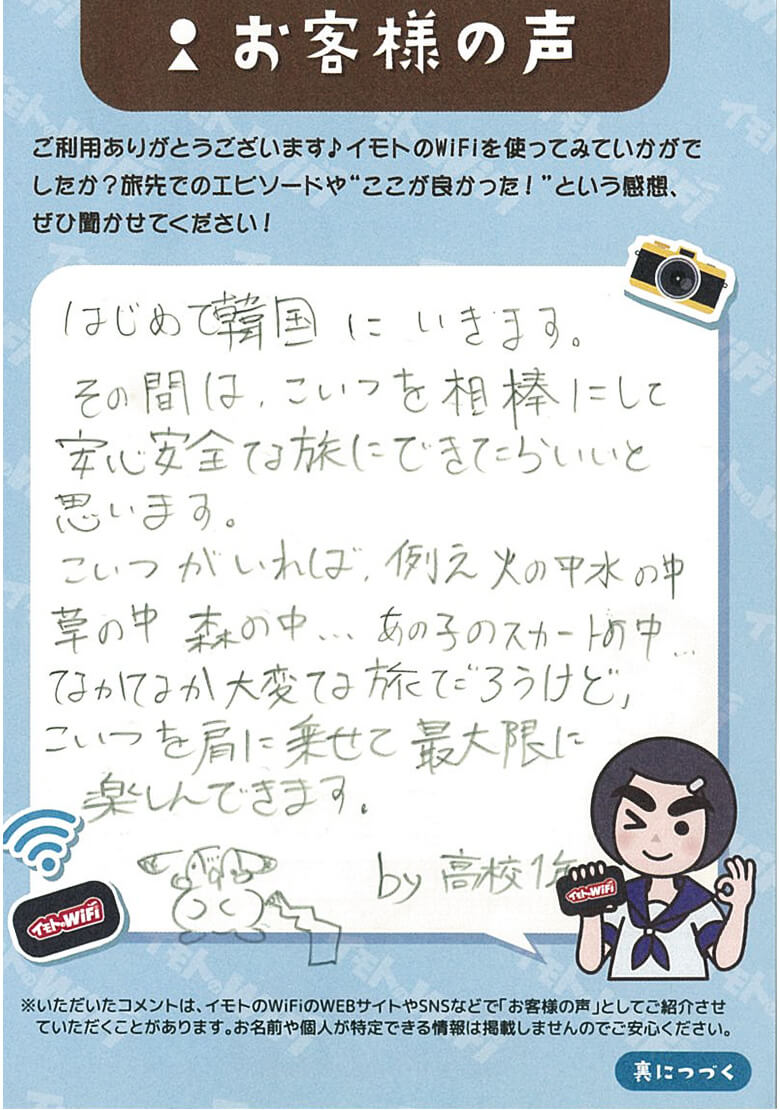 お客様の声
ご利用ありがとうございます♪イモトのWiFiを使ってみていかがで
したか？旅先でのエピソードや“ここが良かった！”という感想、
ぜひ聞かせてください！
はじめて韓国にいきます。
その間は、こいつを相棒にして
安心安全な旅にできたらいいと
思います。
こいつがいれば、例え火の中水の中
草の中 森の中... あの子のスカートの中...
なかなか大変な旅だろうけど、
こいつを肩に乗せて最大限に
楽しんできます。
by 高校1年
イモトのWiFi
イモトのWiFi
※いただいたコメントは、イモトのWiFiのWEBサイトやSNSなどで「お客様の声」としてご紹介させ
ていただくことがあります。お名前や個人が特定できる情報は掲載しませんのでご安心ください。
裏につづく